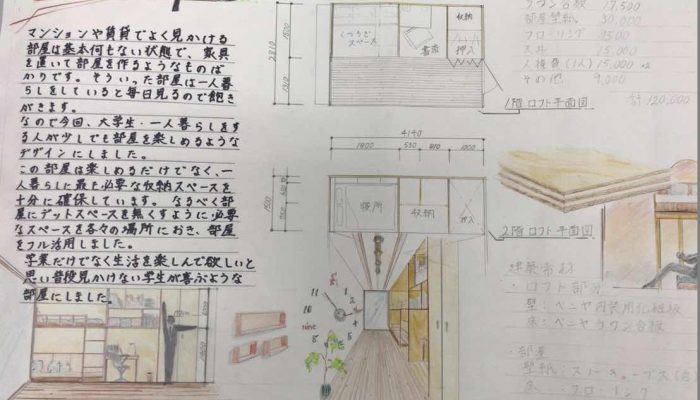 マンションや賃貸でよく見かける
部屋は基本何もない状態で、家具
を置いて部屋を作るようなものば
かりです。そういった部屋は一人暮
らしをしていると毎日見るので飽き
がきます。
なので今回、大学生・一人暮らしをす
る人が少しでも部屋を楽しめるような
デザインにしました。
この部屋は楽しめるだけでなく、一
人暮らしに最も必要な収納スペースを
十分に確保しています。なるべく部
屋にデットスペースを無くすように必要
なスペースを各々の場所におき、部屋
をフル活用しました。
学業だけでなく生活を楽しんで欲しいと
思い普段見かけない学生が喜ぶような
部屋にしました。
1500
2810
1310
収納
スペース
書斎
押入
1階ロフト平面図
17,500
部屋壁紙 30,000
フローリング 9500
天井 15,000
人件費(1人) 15,000 ×2
その他 9,000
計 120,000
4140
1800
530
810
1000
1500
寝所
収納
押入
2階ロフト平面図
建築素材
・ロフト部分
壁:ベニヤ内装用化粧板
床:ベニヤラワン合板
・部屋
床:フローリング
11
1
2
10
nine
8